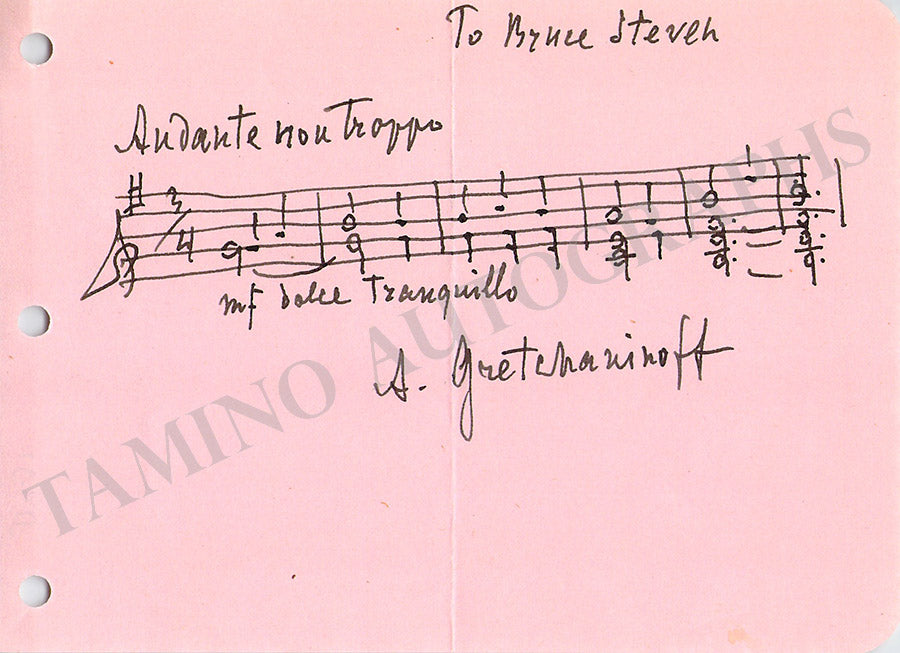 To Bruce Steven
Andante non Troppo
3
4
mf dolce Tranquillo
A. Gretchaninoff
TAMINO AUTOGRAPHS